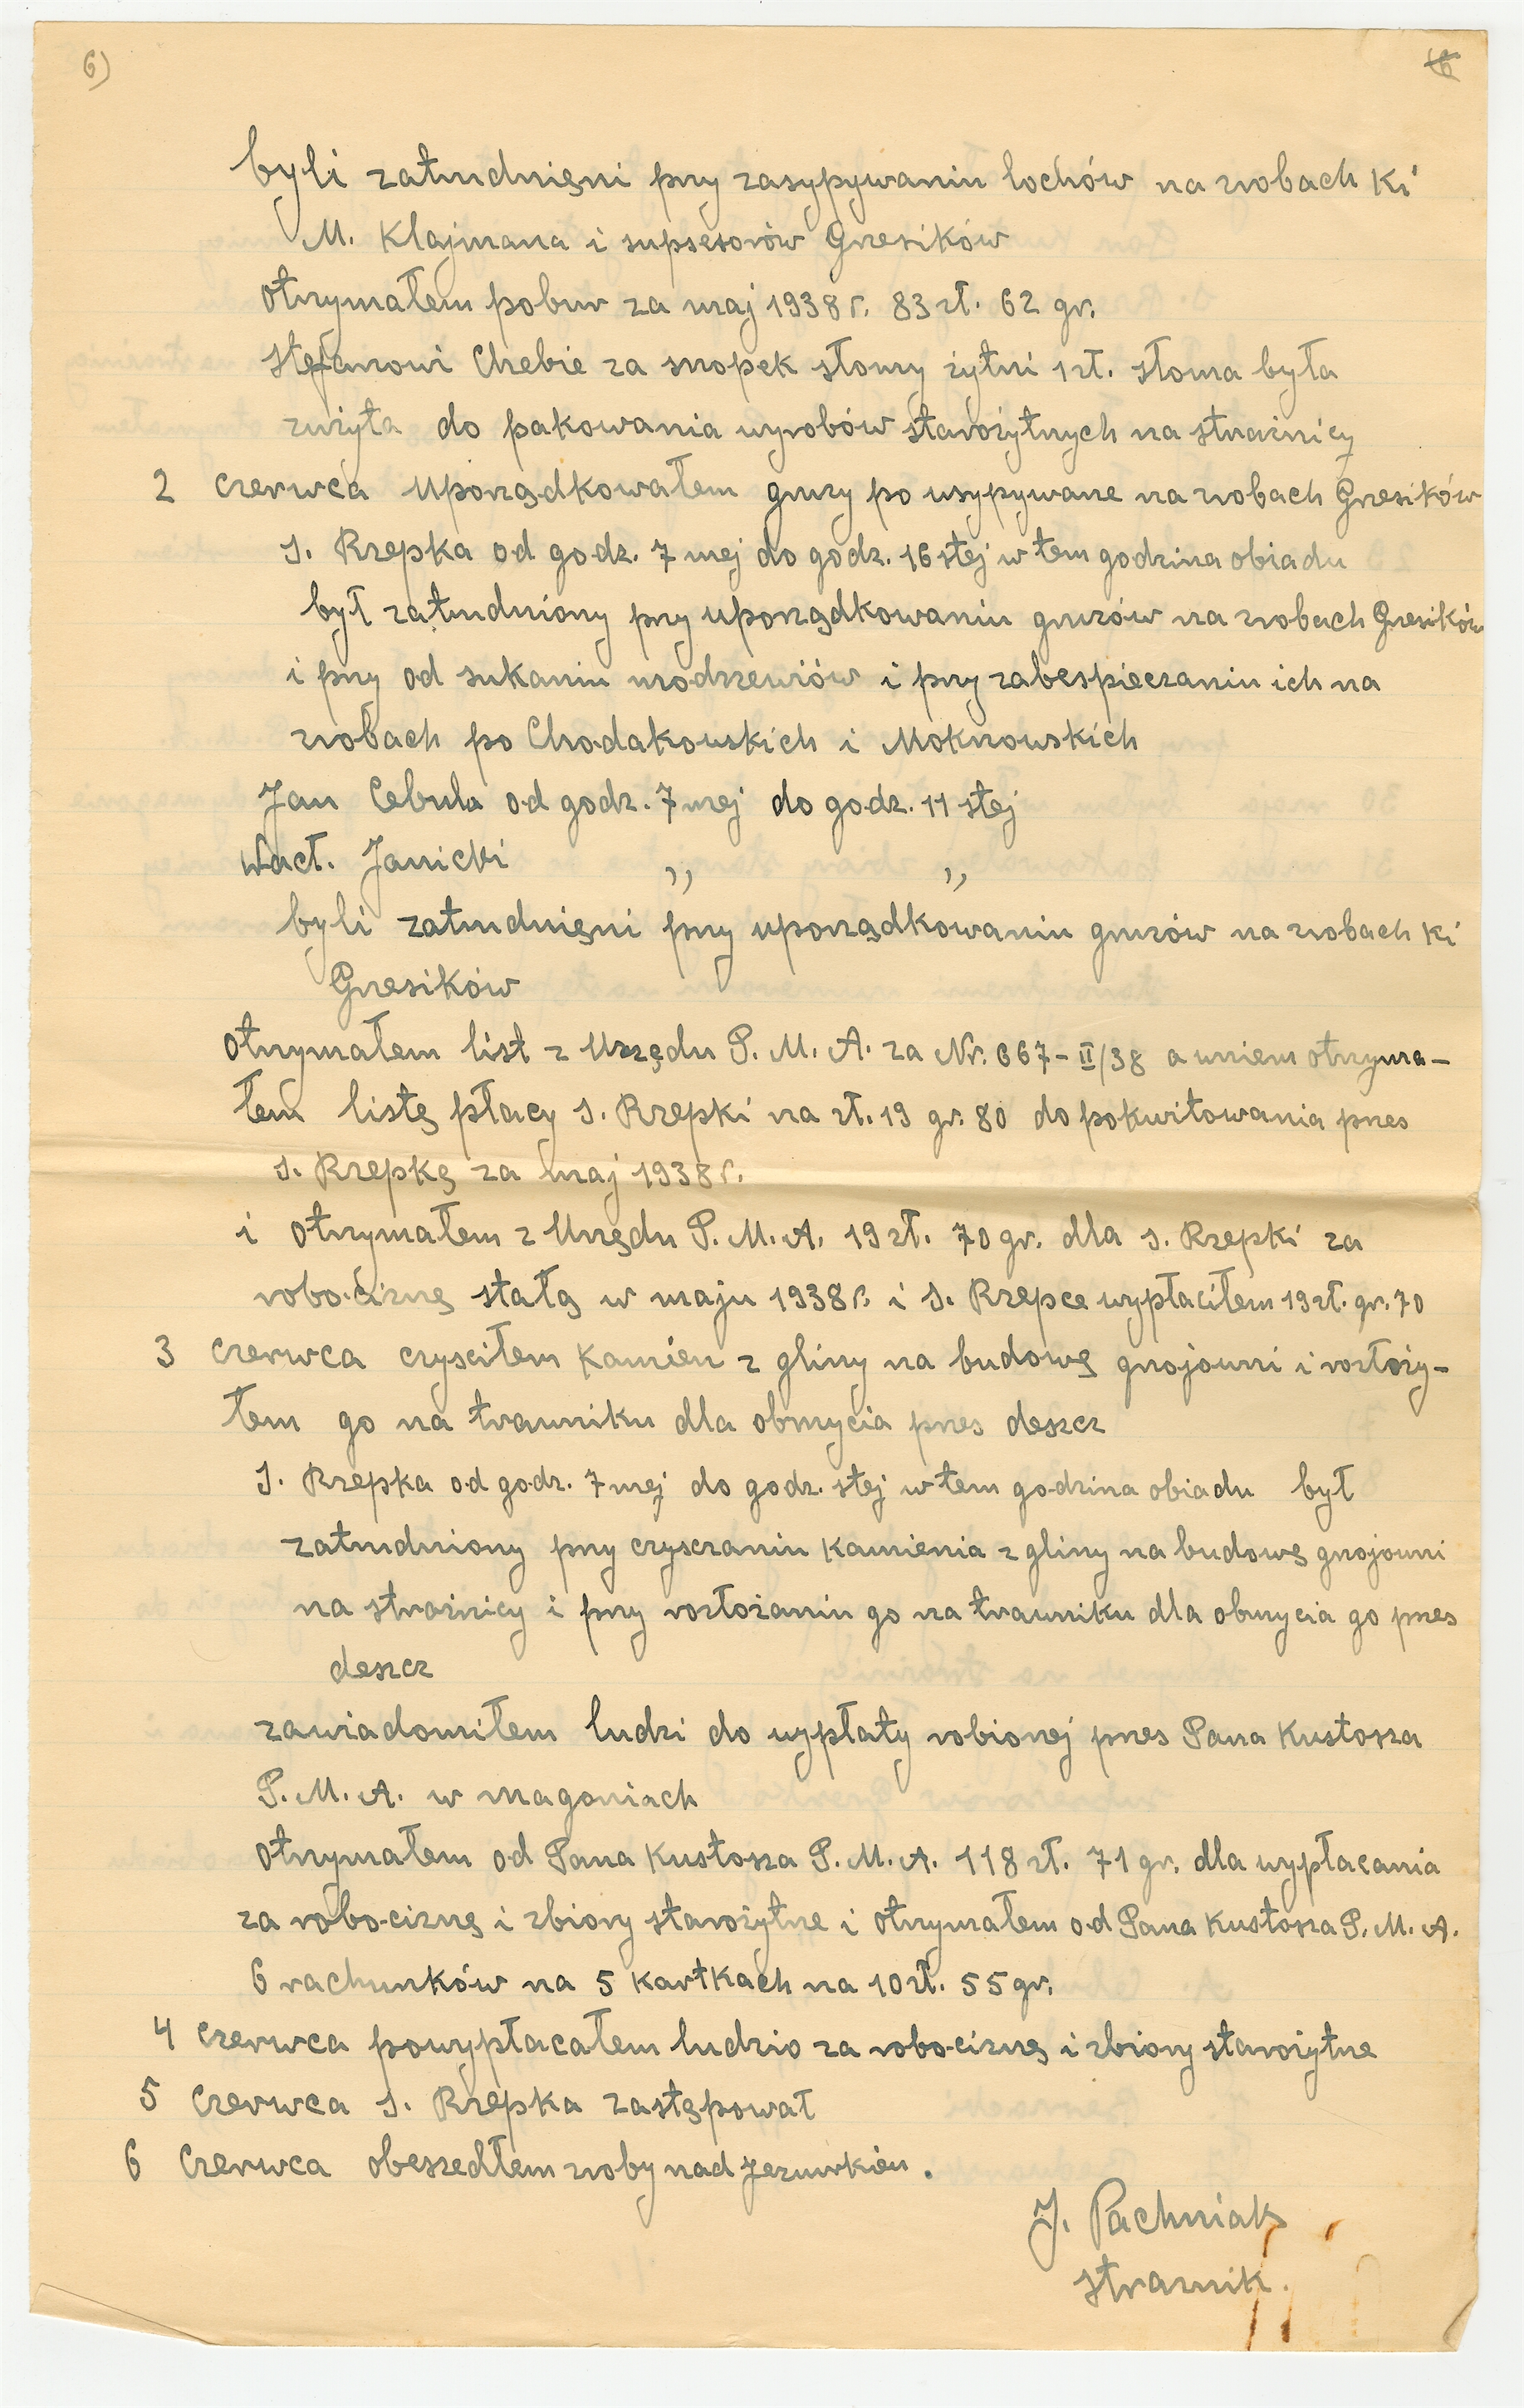 6)
16
byli zatrudnięni przy zasypywaniu lochów na zrobach Ki
M. Klajmana i supsesorów Grzesików
otrzymałem pobur za maj 1938 r. 83 zł. 62 gr.
Stefanowi Chebie za snopek słomy żytni 1 zł. słoma była
zużyta do pakowania wyrobów starożytnych na strażnicy
2 czerwca uporządkowałem gruzy po usypywane na zrobach Grzesików
S. Rzepka od godz. 7 mej do godz. 16 stej w tem godzina obiadu
był zatrudniony przy uporządkowaniu gruzów na zrobach Grzesików
i przy od sukaniu modrzewiów i przy zabespieczaniu ich na
zrobach po Chodakowskich i Moknowskich
Jan Cebula od godz. 7 mej do godz. 11 stej
Wacł. Janicki " "
byli zatrudnięni przy uporządkowaniu gruzów na zrobach Ki
Grzesików
otrzymałem list z Urzędu P. M. A. za Nr. 667-II/38 a wniem otrzyma-
łem listę płacy S. Rzepki na zł. 19 gr. 80 do pokwitowania przes
S. Rzepkę za maj 1938 r.
i otrzymałem z Urzędu P. M. A. 19 zł. 70 gr. dla S. Rzepki za
robociznę stałą w maju 1938 r. i S. Rzepce wypłaciłem 19 zł. gr. 70
3 czerwca czysciłem kamień z gliny na budowę gnojowni i rozłoży-
łem go na trawniku dla obmycia przes deszcz
S. Rzepka od godz. 7 mej do godz. stej w tem godzina obiadu był
zatrudniony przy czysczaniu kamienia z gliny na budowę gnojowni
na strażnicy i przy rozłożaniu go na trawniku dla obmycia go przes
deszcz
zawiadomiłem ludzi do wypłaty robionej przes Pana Kustosza
P. M. A. w Magoniach
otrzymałem od Pana Kustosza P. M. A. 118 zł. 71 gr. dla wypłacania
za robociznę i zbiory starożytne i otrzymałem od Pana Kustosza P. M. A.
6 rachunków na 5 kartkach na 10 zł. 55 gr.
4 czerwca powypłacałem ludzio za robociznę i zbiory starożytne
5 czerwca S. Rzepka zastępował
6 czerwca obeszedłem zroby nad Jeziurkiem.
J. Pachniak
strażnik.